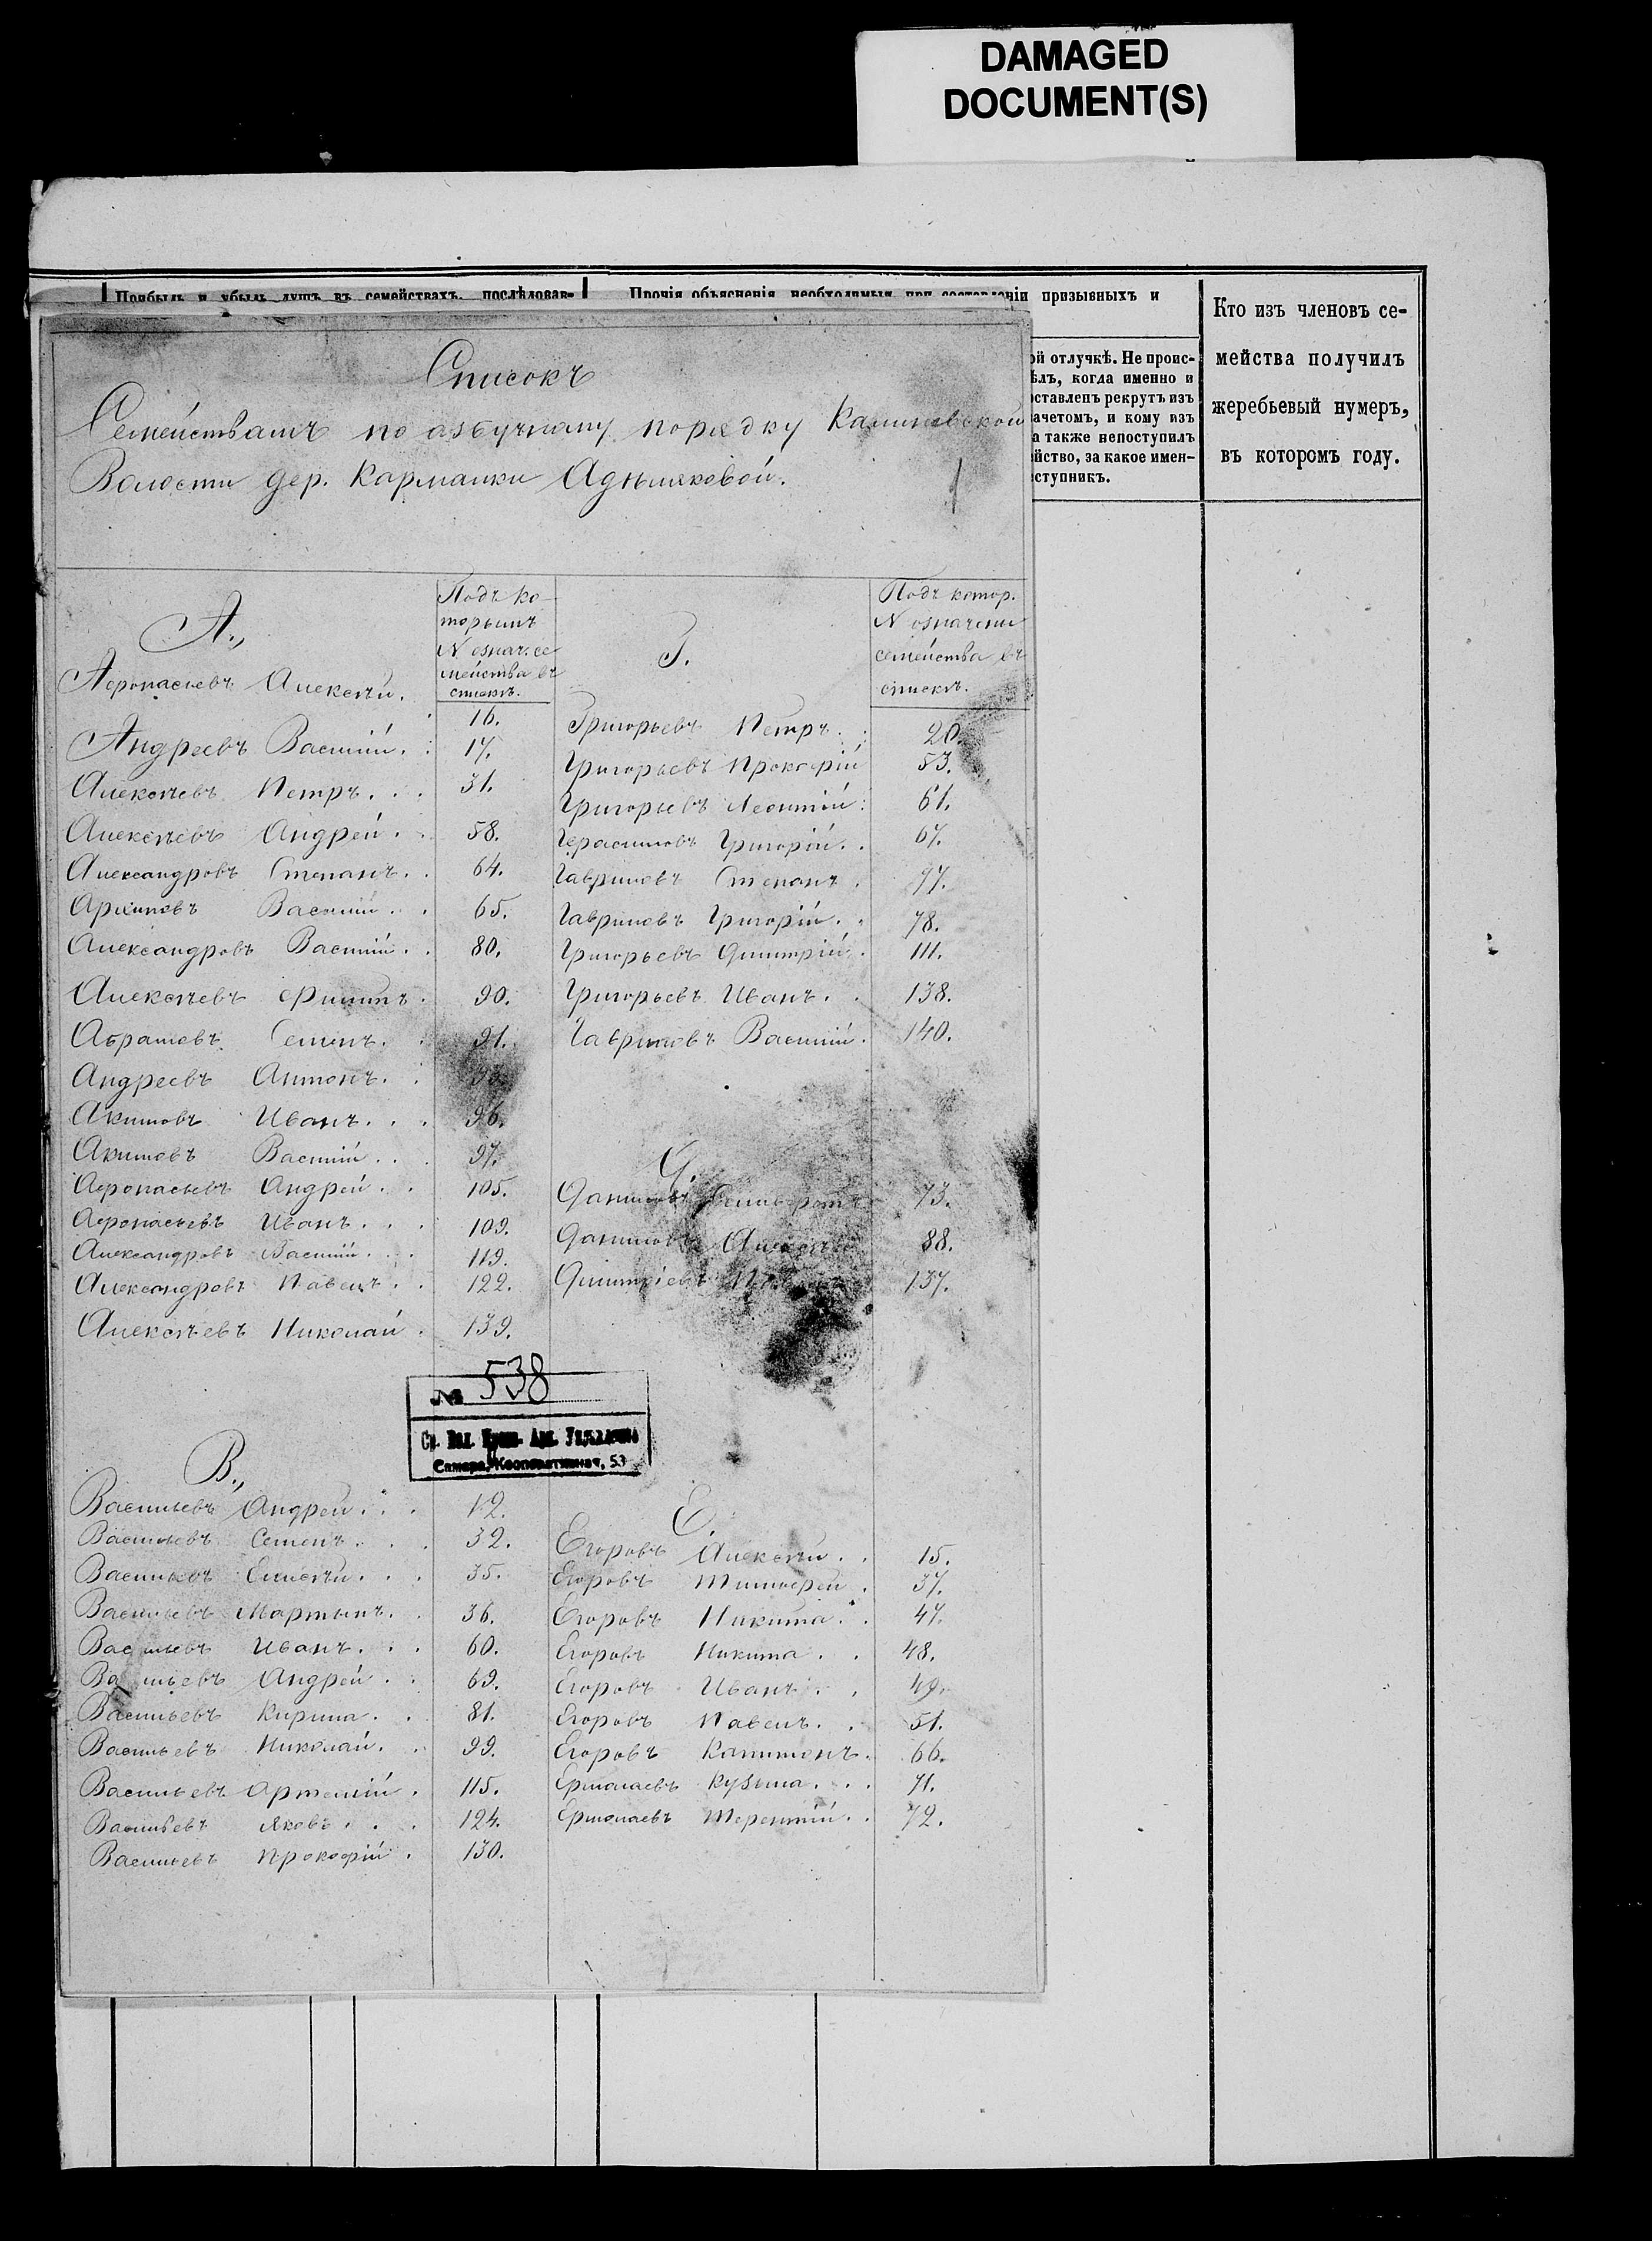 DAMAGED
DOCUMENT(S)
Прибыль и убыль душъ въ семействахъ, послѣдовав-
Прочія объясненія, необходимыя при составленіи призывныхъ и
Кто изъ членовъ се-
мейства получилъ
жеребьевый нумеръ,
въ которомъ году.
ой отлучкѣ. Не проис-
ѣлъ, когда именно и
оставленъ рекрутъ изъ
ачетомъ, и кому изъ
а также непоступилъ
ейство, за какое имен-
еступникъ.
Списокъ
Семействамъ по азбучному порядку Калиновской
Волости дер. Кармалки
А.,
Подъ ко-
торымъ
N означ. се
мейства въ
спискѣ.
Афонасьевъ Алексѣй.
16.
Андреевъ Василій. 17.
Алексѣевъ Петръ. 31.
Алексѣевъ Андрей. 58.
Александровъ Степанъ. 64.
Архиповъ Василій. 65.
Александровъ Василій. 80.
Алексѣевъ Филипъ. 90.
Абрамовъ Семенъ. 91.
Андреевъ Антонъ.
Акимовъ Иванъ. 96.
Акимовъ Василій. 97.
Афонасьевъ Андрей. 105.
Афонасьевъ Иванъ. 109.
Александровъ Василій. 119.
Александровъ Павелъ. 122.
Алексѣевъ Николай. 139.
№ 538
Самара, Кооперативная, 53
В.,
Васильевъ Андрей. 12.
Васильевъ Семенъ. 32.
Васильевъ Елисѣй. 35.
Васильевъ Мартынъ. 36.
Васильевъ Иванъ. 60.
Васильевъ Андрей. 69.
Васильевъ Кирила. 81.
Васильевъ Николай. 99.
Васильевъ Артемій. 115.
Васильевъ Яковъ. 124.
Васильевъ Прокофій. 130.
Г.
Подъ котор.
N означени
семейства въ
спискѣ.
Григорьевъ Петръ. 20.
Григорьевъ Прокофій 53.
Григорьевъ Леонтій. 61.
Герасимовъ Григорій. 67.
Гавриловъ Степанъ. 97.
Гавриловъ Григорій. 78.
Григорьевъ Дмитрій. 111.
Григорьевъ Иванъ. 138.
Гавриловъ Василій. 140.
Д.
Даниловъ 73.
Даниловъ Алексѣй 88.
Дмитріевъ 137.
Е.
Егоровъ Алексѣй. 15.
Егоровъ Тимофей. 37.
Егоровъ Никита. 47.
Егоровъ Никита. 48.
Егоровъ Иванъ. 49.
Егоровъ Павелъ. 51.
Егоровъ Капитонъ. 66.
Ермолаевъ Кузьма. 71.
Ермолаевъ Терентій. 72.